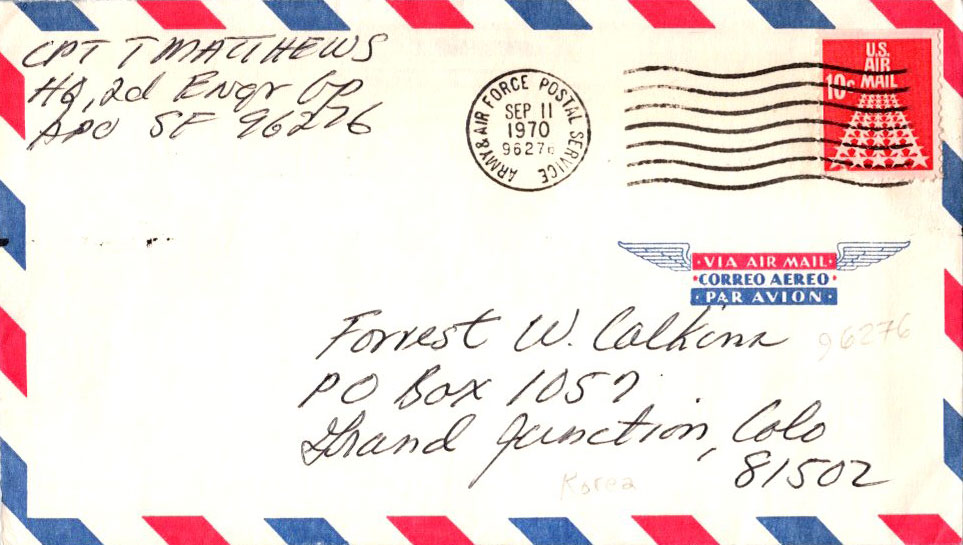 CPT T MATTHEWS
HQ, 2d Engr Gp
APO SF 96276
ARMY & AIR FORCE POSTAL SERVICE
SEP 11
1970
96276
U.S.
AIR
MAIL
10c
VIA AIR MAIL
CORREO AEREO
PAR AVION
Forrest W. Calkins
96276
PO Box 1057
Grand Junction, Colo
81502
Korea